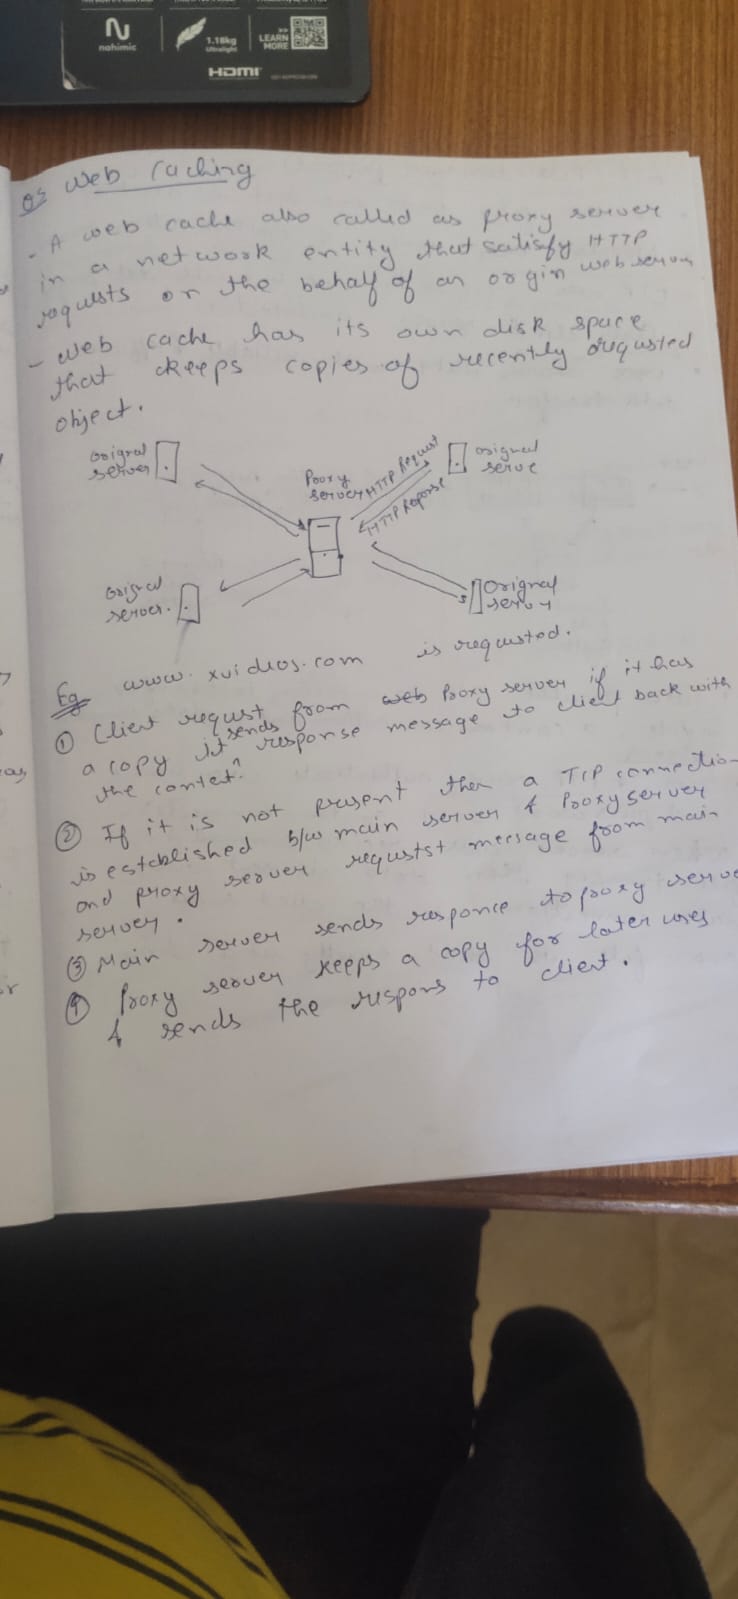 nahimic
1.18kg
Ultralight
LEARN
MORE
HDMI
Q5 Web Caching
- A web cache also called as proxy server
in a network entity that satisfy HTTP
requsts on the behalf of an orgin web server
- Web cache has its own disk space
that ckeeps copies of recently requsted
object.
Orignal
server
Proxy
server
HTTP Request
HTTP Reponse
orignal
serve
Orignal
server.
Orignal
server
Eg www.xvideos.com is requsted.
① Client requst from web Proxy server if it has
a copy it sends response message to client back with
the contet.
② If it is not present then a TCP connectio
is established b/w main server & Proxy server
and proxy server requstst message from main
server.
③ Main server sends responce to proxy serve
④ Proxy server keeps a copy for later uses
& sends the respons to client.